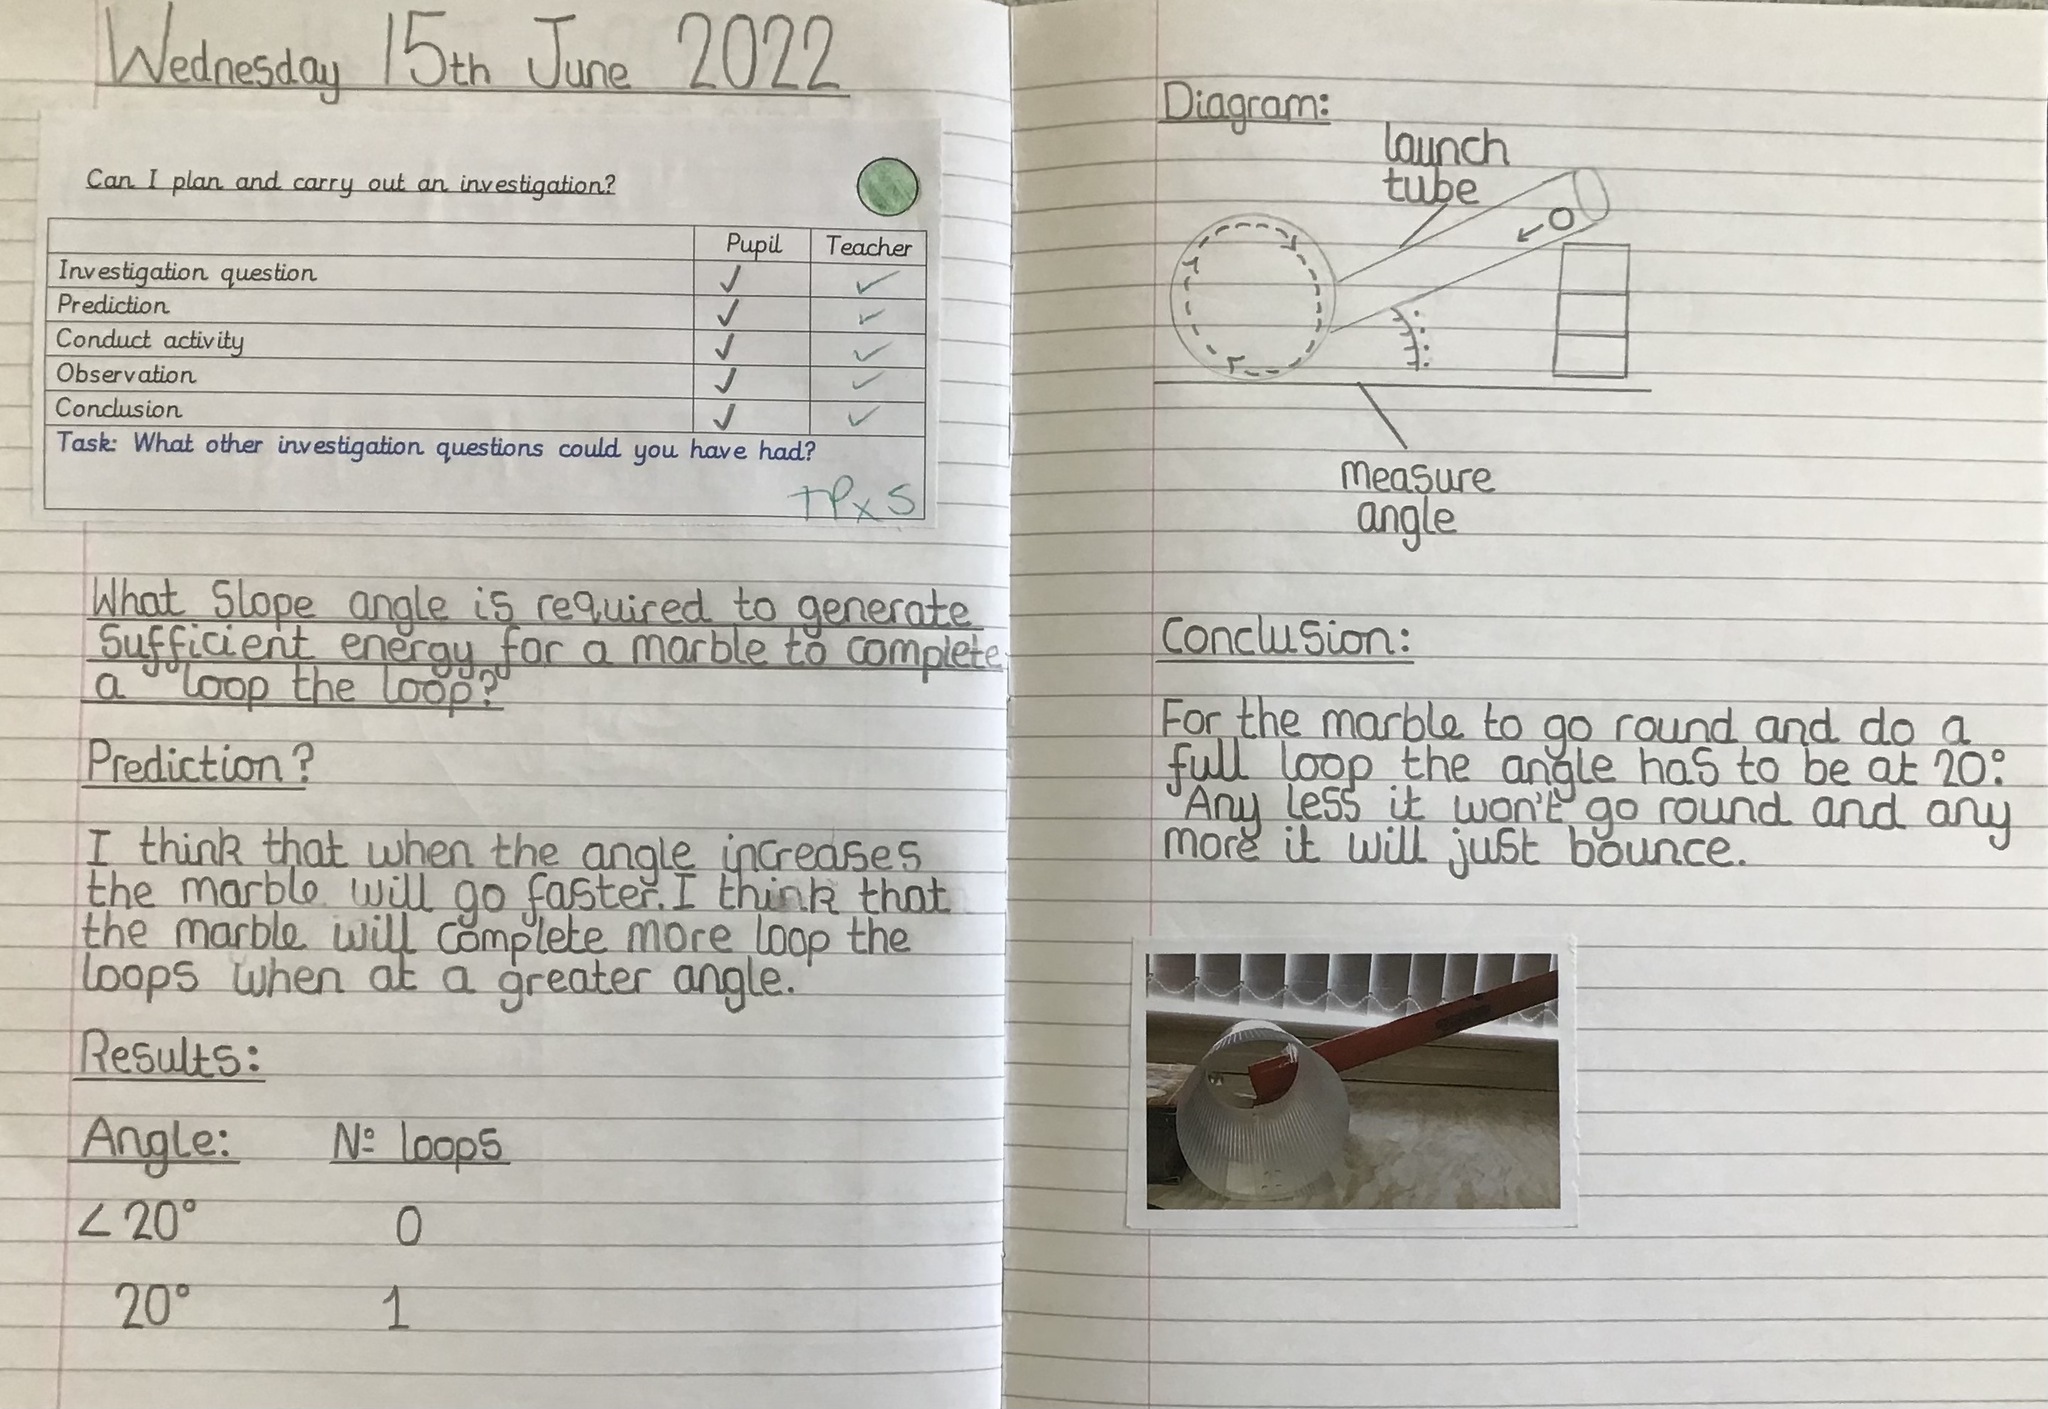 Wednesday 15th June 2022
Can I plan and carry out an investigation?
Pupil Teacher
Investigation question
Prediction
Conduct activity
Observation
Conclusion
Task: What other investigation questions could you have had?
TPx5
What Slope angle is required to generate
sufficient energy for a marble to complete
a "loop the loop?"
Prediction?
I think that when the angle increases
the marble will go faster. I think that
the marble will complete more loop the
loops when at a greater angle.
Results:
Angle: Nº loops
<20° 0
20° 1
Diagram:
launch
tube
measure
angle
Conclusion:
For the marble to go round and do a
full loop the angle has to be at 20°.
Any less it won't go round and any
more it will just bounce.